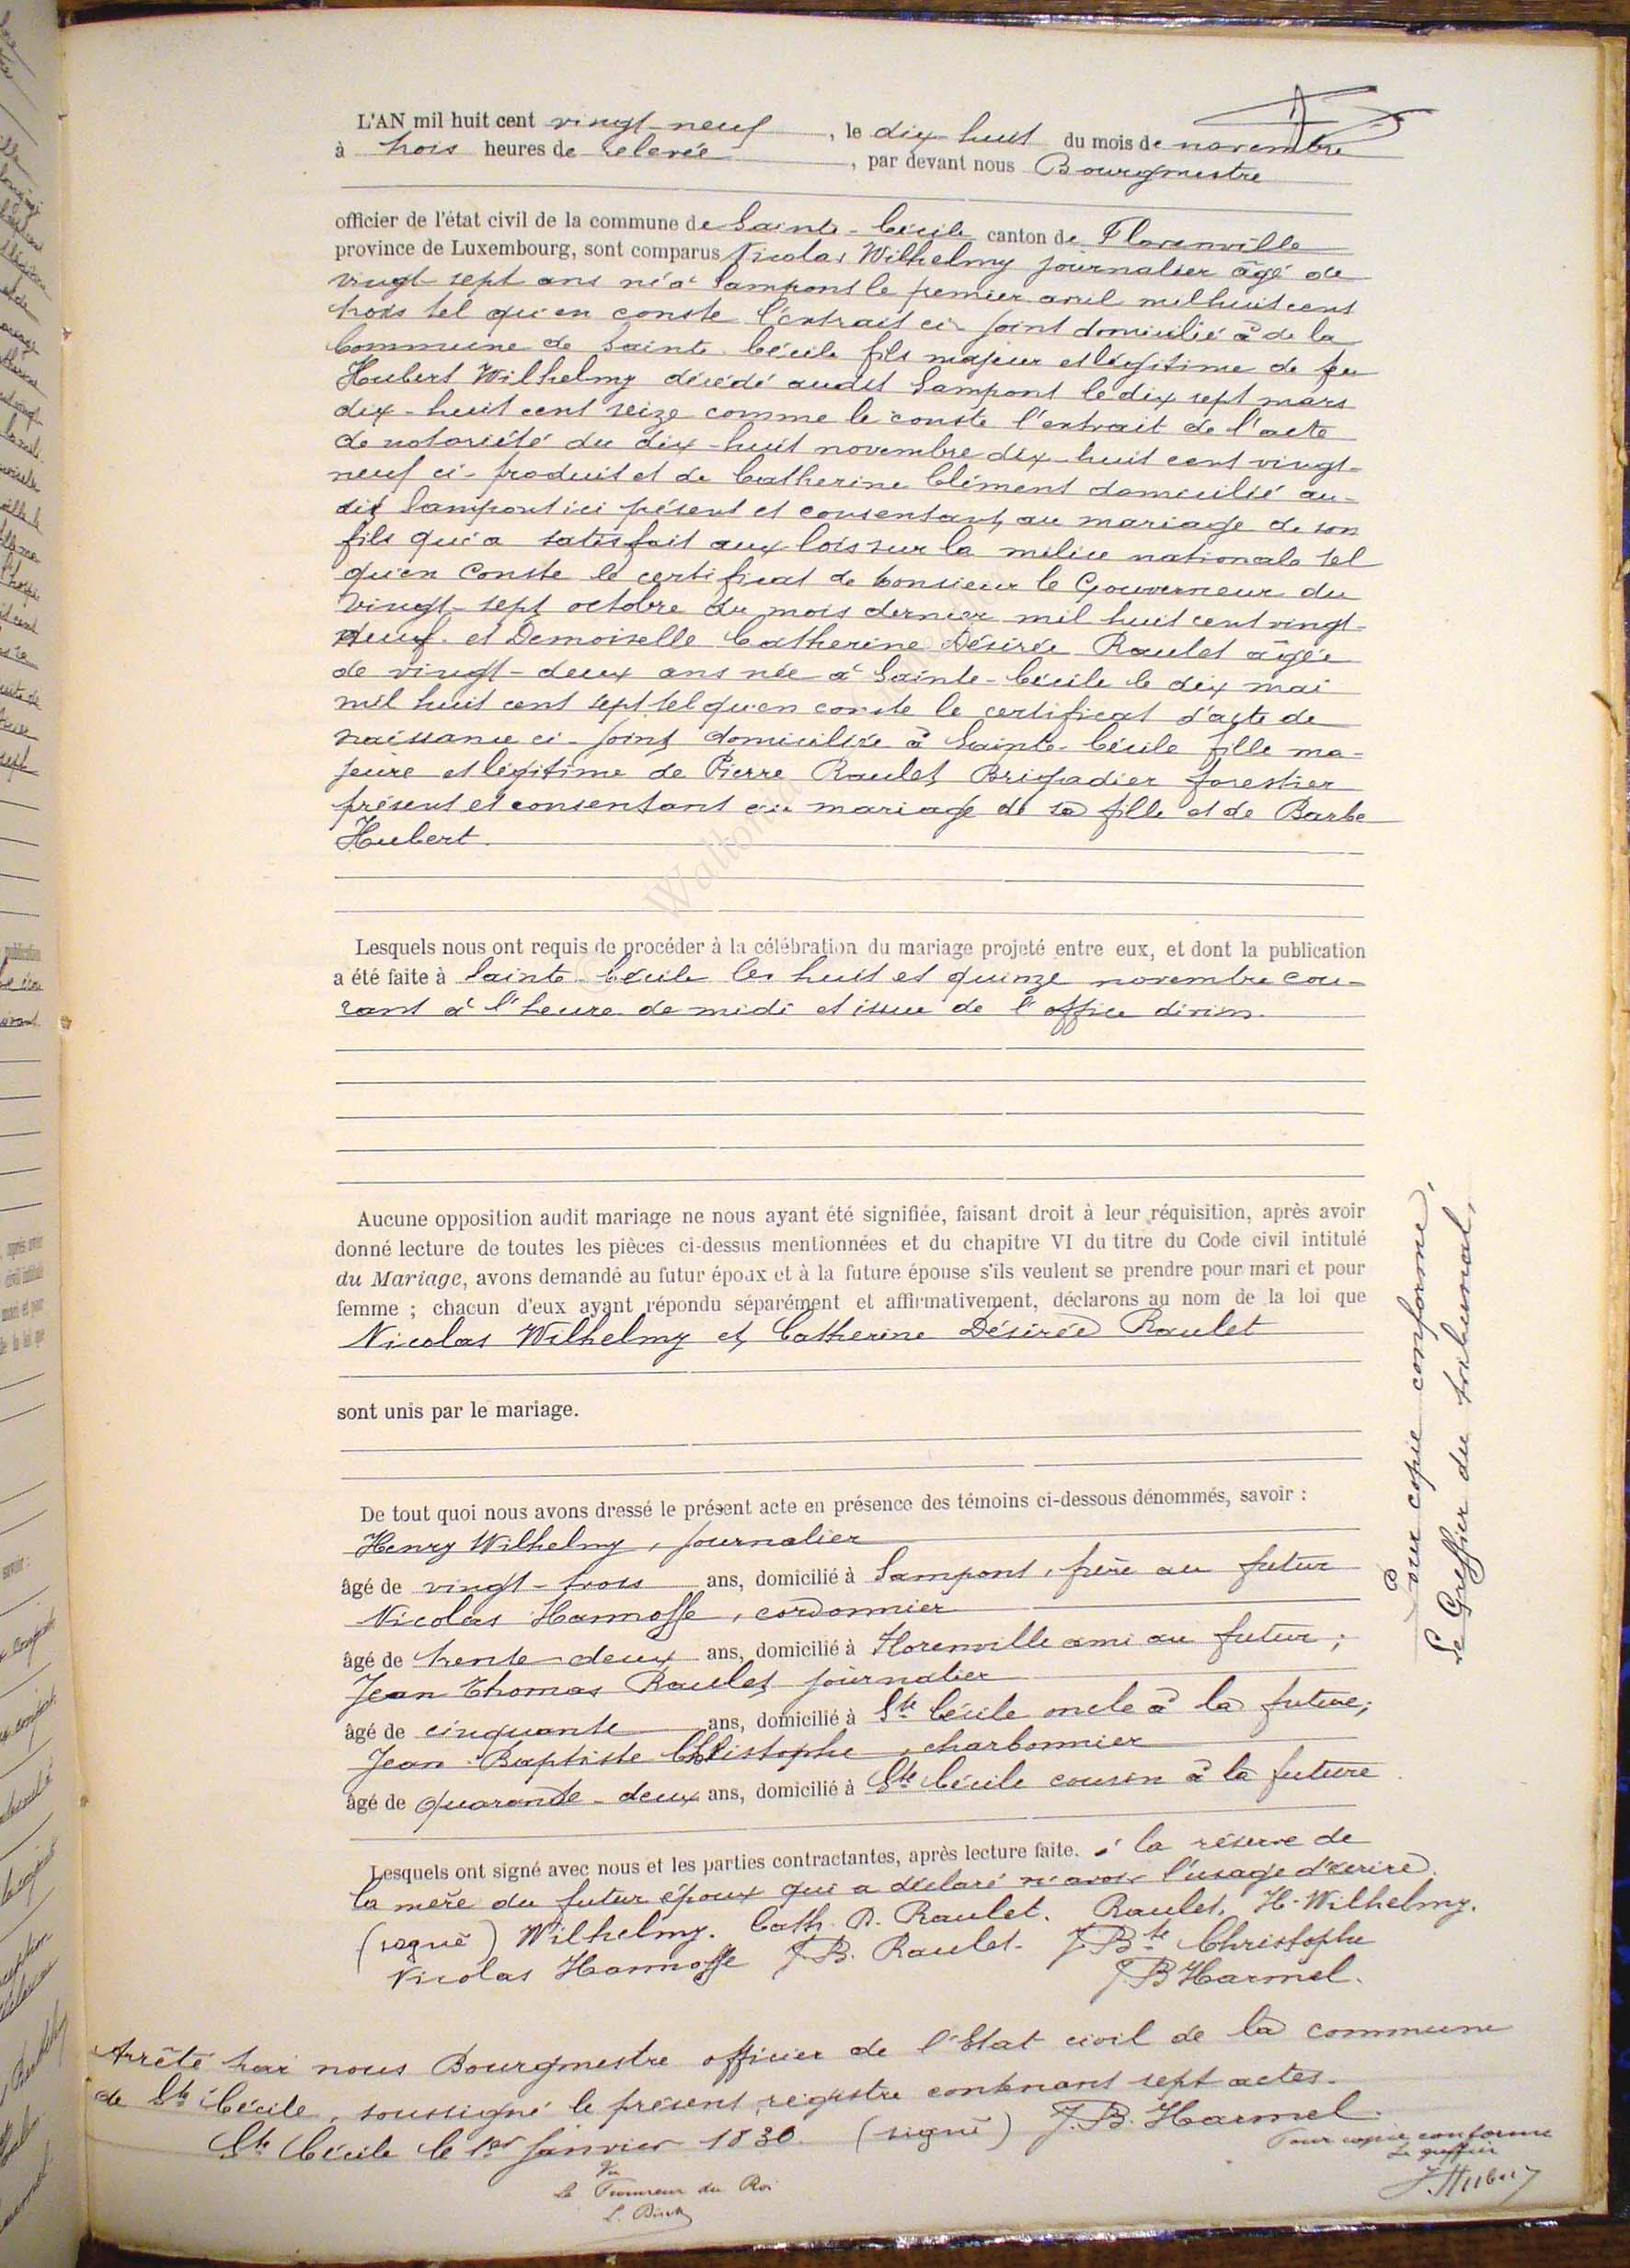 L'AN mil huit cent vingt-neuf, le dix huit du mois de novembre
à trois heures de relevée, par devant nous Bourgmestre
officier de l'état civil de la commune de Sainte-Cécile canton de Florenville
province de Luxembourg, sont comparus Nicolas Wilhelmy journalier âgé de
vingt-sept ans né à Sampont le premier avril mil huit cent
trois tel qu'en conste l'extrait ci-joint domicilié à de la
Commune de Sainte-Cécile fils majeur et légitime de feu
Hubert Wilhelmy décédé audit Sampont le dix sept mars
dix-huit cent seize comme le conste l'extrait de l'acte
de notoriété du dix-huit novembre dix-huit cent vingt-
neuf ci-produit et de Catherine Clément domicilié au-
dit Sampont ici présent et consentant au mariage de son
fils qui a satisfait aux lois sur la milice nationale tel
qu'en conste le certificat de monsieur le Gouverneur du
vingt-sept octobre du mois dernier mil huit cent vingt-
neuf. et Demoiselle Catherine Désirée Raulet âgée
de vingt-deux ans née à Sainte-Cécile le dix mai
mil huit cent sept tel qu'en conste le certificat d'acte de
naissance ci-joint domiciliée à Sainte-Cécile fille ma-
jeure et légitime de Pierre Raulet Brigadier forestier
présent et consentant au mariage de sa fille et de Barbe
Hubert.
Lesquels nous ont requis de procéder à la célébration du mariage projeté entre eux, et dont la publication
a été faite à Sainte-Cécile les huit et quinze novembre cou-
rant à l'heure de midi et issue de l'office divin.
Aucune opposition audit mariage ne nous ayant été signifiée, faisant droit à leur réquisition, après avoir
donné lecture de toutes les pièces ci-dessus mentionnées et du chapitre VI du titre du Code civil intitulé
du Mariage, avons demandé au futur époux et à la future épouse s'ils veulent se prendre pour mari et pour
femme ; chacun d'eux ayant répondu séparément et affirmativement, déclarons au nom de la loi que
Nicolas Wilhelmy et Catherine Désirée Raulet
sont unis par le mariage.
De tout quoi nous avons dressé le présent acte en présence des témoins ci-dessous dénommés, savoir :
Henry Wilhelmy, journalier
âgé de vingt-trois ans, domicilié à Sampont, frère au futur
Nicolas Hannosse, cordonnier
âgé de trente-deux ans, domicilié à Florenville ami au futur;
Jean Thomas Raulet journalier
âgé de cinquante ans, domicilié à Ste Cécile oncle à la future;
Jean-Baptiste Christophe, charbonnier
âgé de quarante-deux ans, domicilié à Ste Cécile cousin à la future
Lesquels ont signé avec nous et les parties contractantes, après lecture faite. à la réserve de
la mère du futur époux qui a déclaré n'avoir l'usage d'écrire.
(signé) Wilhelmy. Cath. D. Raulet. Raulet. H. Wilhelmy.
Nicolas Hannosse J.B. Raulet. J. Bte Christophe
J B Harmel.
Arrêté par nous Bourgmestre officier de l'Etat civil de la commune
de Ste Cécile, soussigné le présent registre contenant sept actes.
Ste Cécile le 1er janvier 1830. (signé) J.B. Harmel.
Pour copie conforme
Le greffier
J. Hubert
Vu
Le Procureur du Roi
Pour copie conforme,
Le Greffier du tribunal,